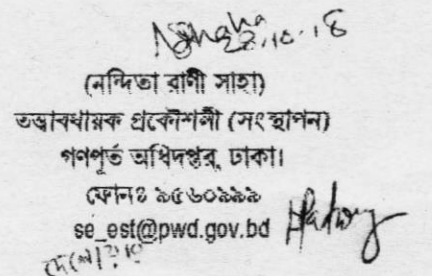 22.10.18
(নন্দিতা রাণী সাহা)
তত্ত্বাবধায়ক প্রকৌশলী (সংস্থাপন)
গণপূর্ত অধিদপ্তর, ঢাকা।
ফোনঃ ৯৫৬০৯৯৯
se_est@pwd.gov.bd